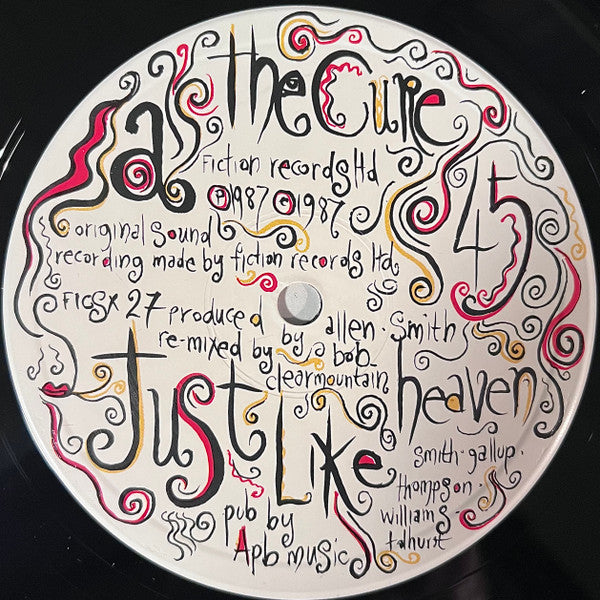 a
the Cure
Fiction records ltd
℗1987 ©1987
45
original sound
recording made by fiction records ltd
FICSX 27
produced by allen · Smith
re-mixed by bob
clearmountain
Just Like heaven
smith · gallup ·
thompson ·
williams ·
tolhurst
pub by
Apb music